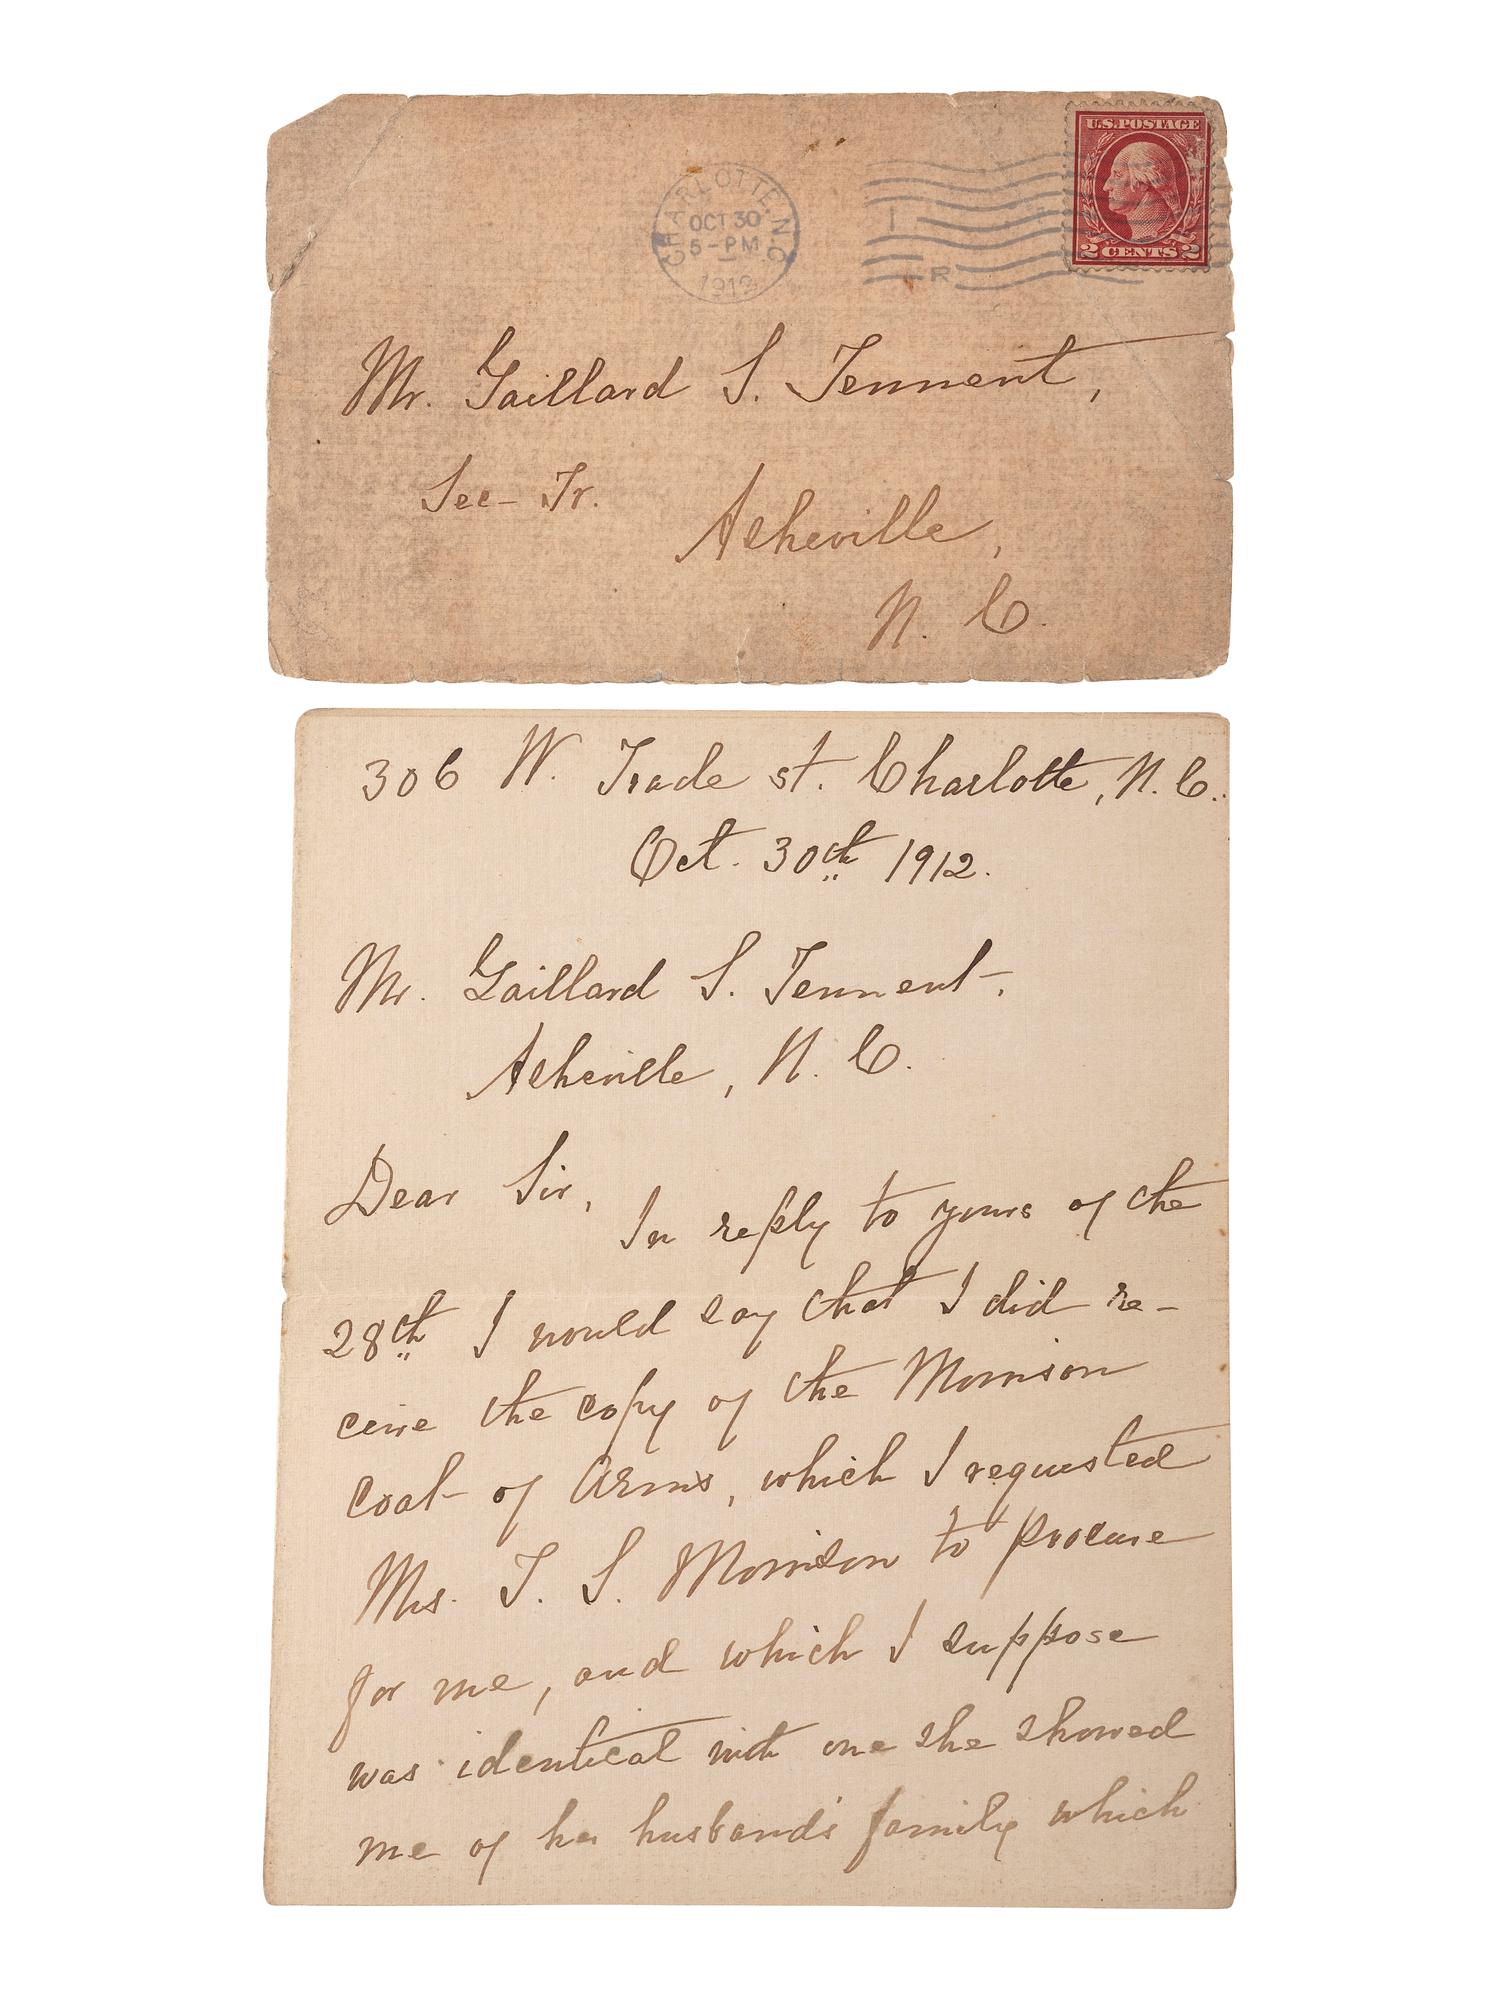 CHARLOTTE, N.C.
OCT 30
5-PM
1912
1
R
U.S. POSTAGE
2 CENTS 2
Mr. Gaillard S. Tennent,
Sec- Tr.
Asheville,
N. C.
306 W. Trade st. Charlotte, N. C.
Oct. 30th 1912.
Mr. Gaillard S. Tennent.
Asheville, N. C.
Dear Sir,
In reply to yours of the
28th I would say that I did re-
ceive the copy of the Morrison
coat of Arms, which I requested
Mrs. T. S. Morrison to procure
for me, and which I suppose
was identical with one she showed
me of her husband's family which